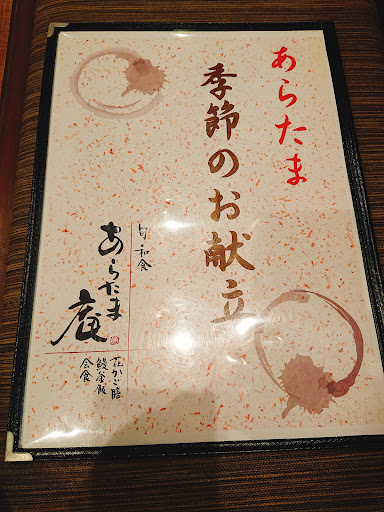 あらたま
季節のお献立
旬 和食
あらたま庵
花かご膳
鰻釜飯
会食